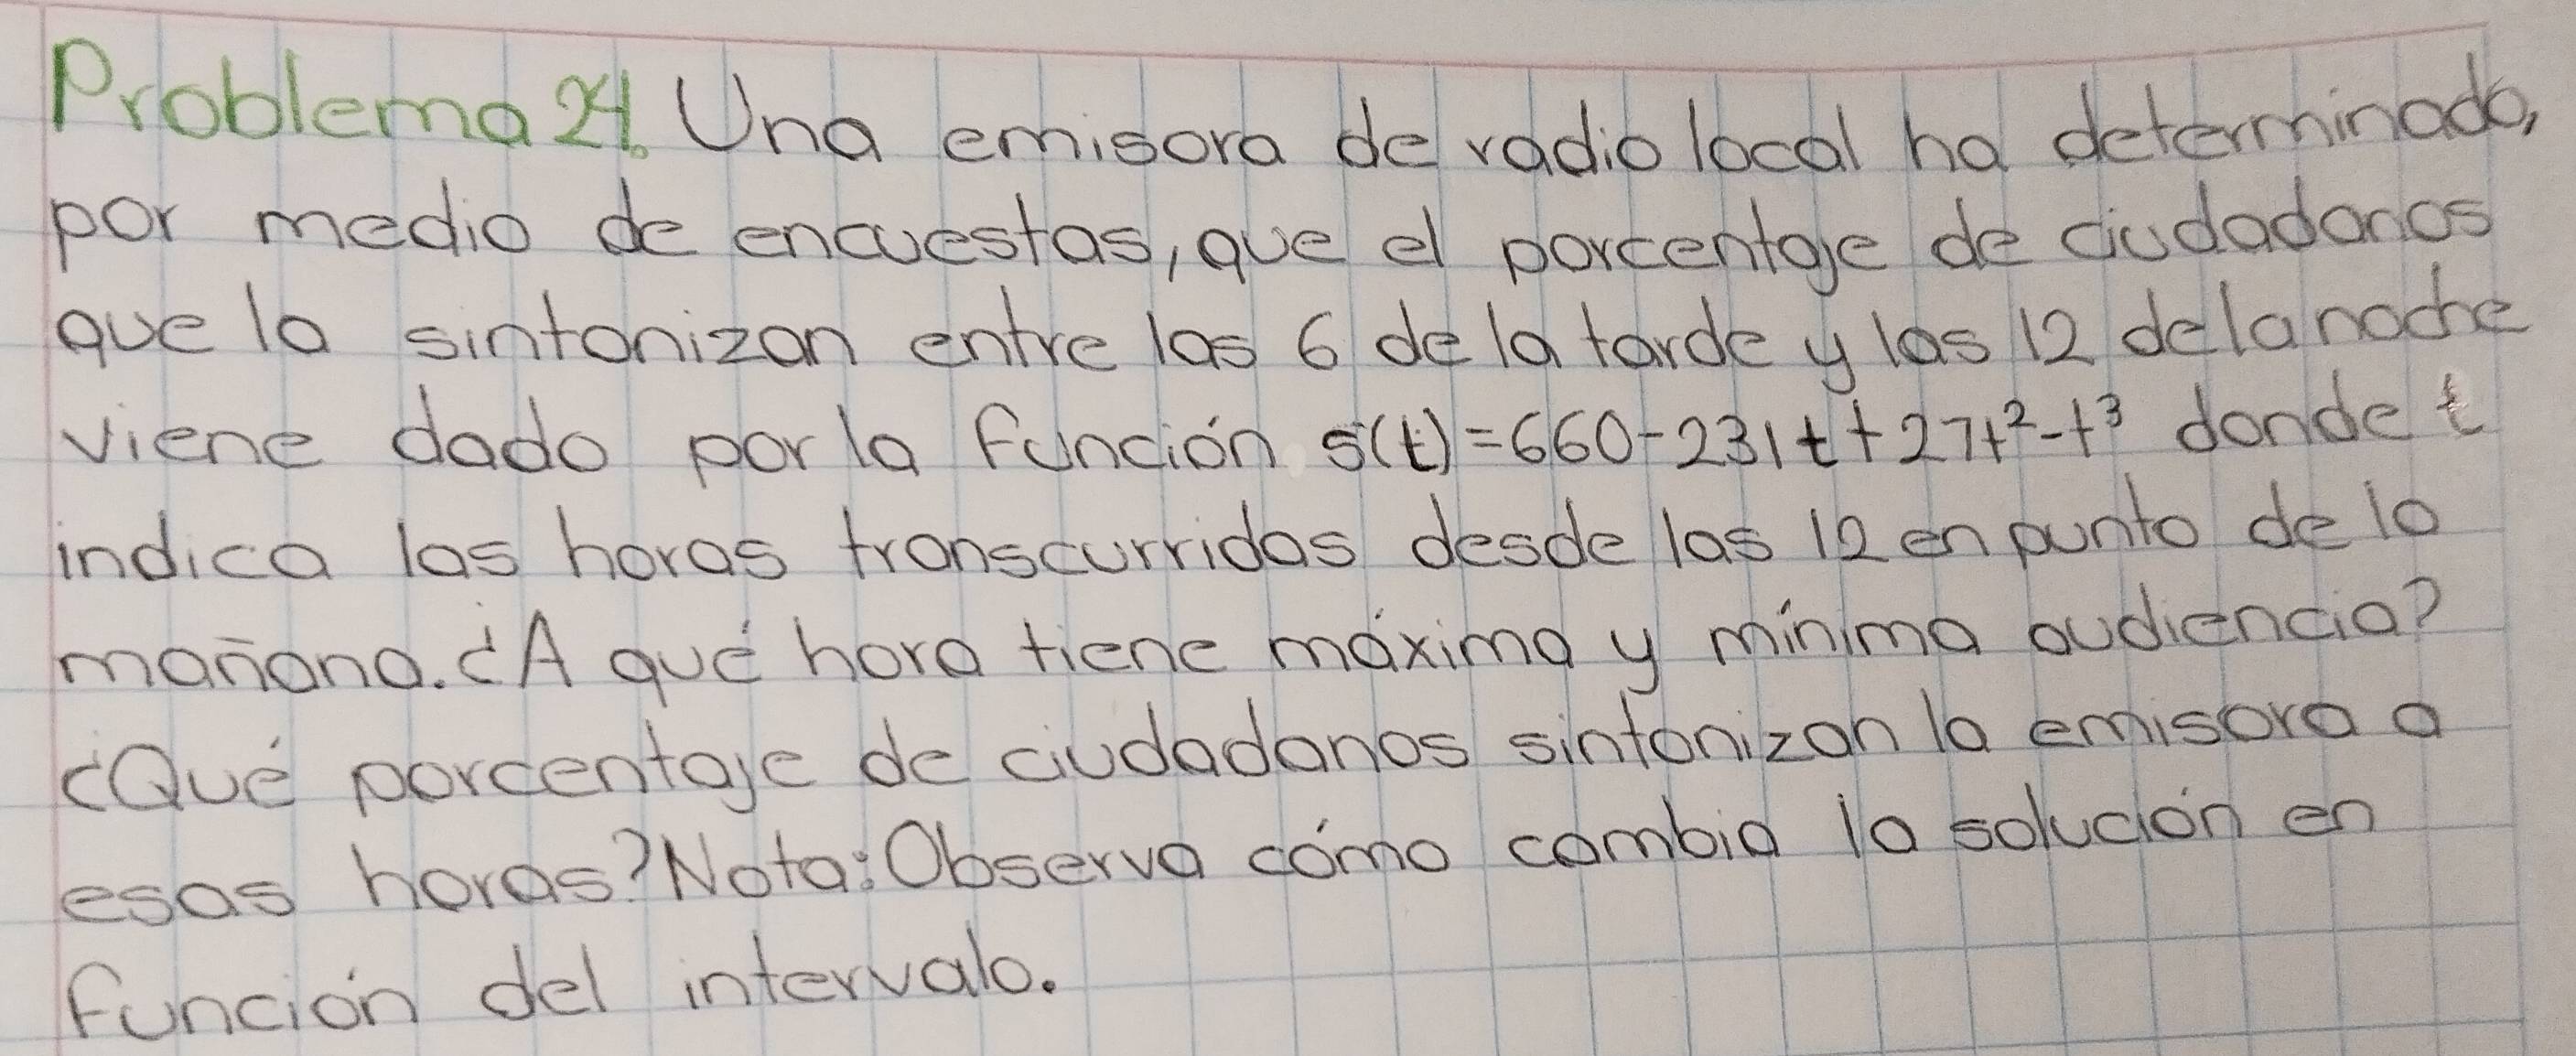 Problema 24. Una emisora de radio local ha determinado,
por medio de encuestas, que el porcentaje de ciudadanos
que la sintonizan entre las 6 de la tarde y las 12 de la noche
viene dado por la función s(t)=660-231t+27t²-t³ donde t
indica las horas transcurridas desde las 12 en punto de la
mañana. ¿A qué hora tiene máxima y mínima audiencia?
¿Qué porcentaje de ciudadanos sintonizan la emisora a
esas horas? Nota: Observa cómo cambia la solución en
función del intervalo.